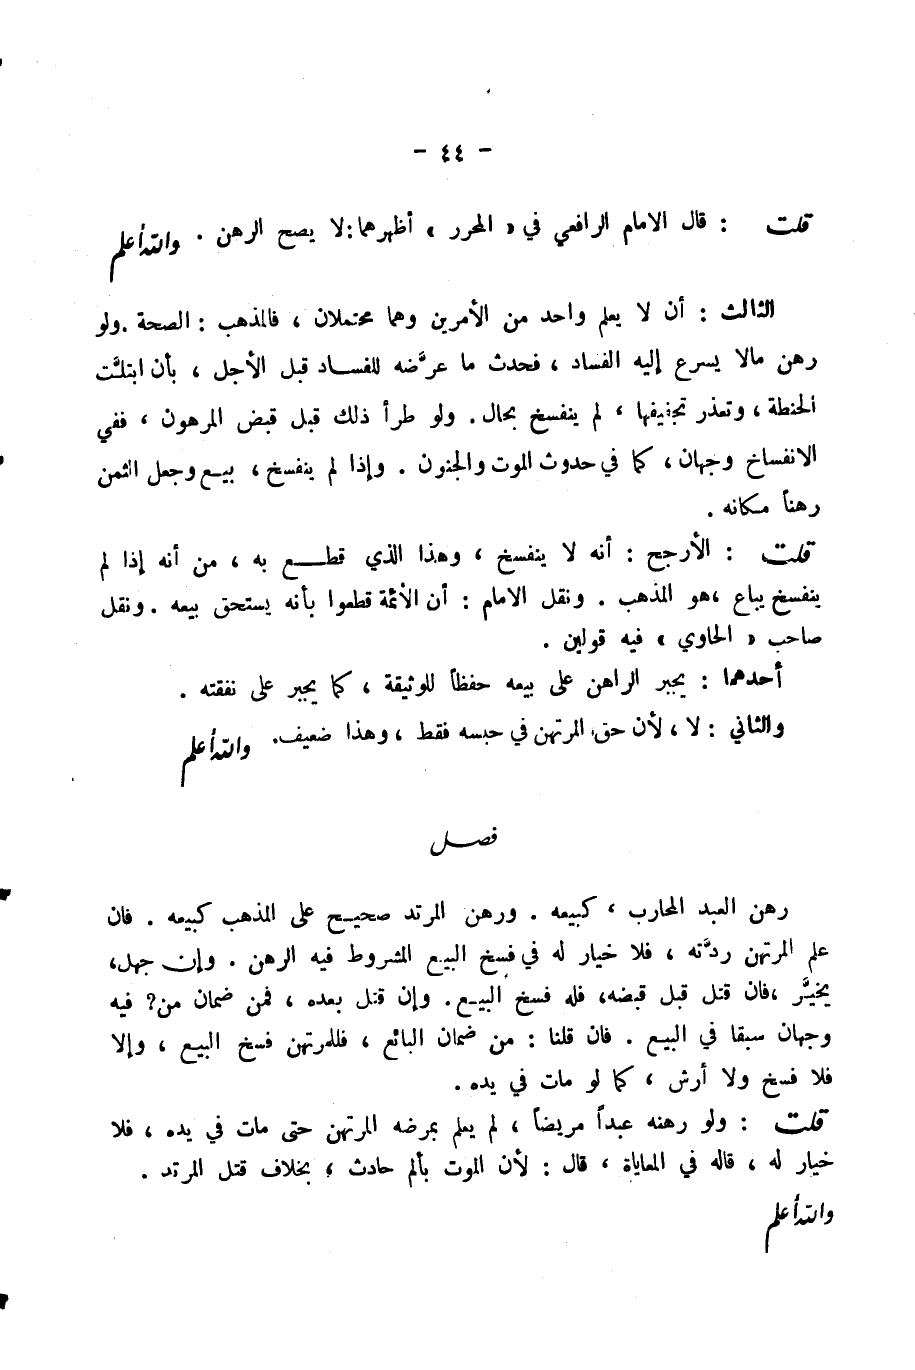 - ٤٤ -
قلت : قال الامام الرافعي في « المحرر » أظهرهما : لا يصح الرهن . والله أعلم
الثالث : أن لا يعلم واحد من الأمرين وهما محتملان ، فالمذهب : الصحة . ولو
رهن مالا يسرع إليه الفساد ، فحدث ما عرَّضه للفساد قبل الأجل ، بأن ابتلَّت
الحنطة ، وتعذر تجفيفها ، لم ينفسخ بحال . ولو طرأ ذلك قبل قبض المرهون ، ففي
الانفساخ وجهان ، كما في حدوث الموت والجنون . وإذا لم ينفسخ ، بيع وجعل الثمن
رهناً مكانه .
قلت : الأرجح : أنه لا ينفسخ ، وهذا الذي قطع به ، من أنه إذا لم
ينفسخ يباع ، هو المذهب . ونقل الامام : أن الأئمة قطعوا بأنه يستحق بيعه . ونقل
صاحب « الحاوي » فيه قولين .
أحدهما : يجبر الراهن على بيعه حفظاً للوثيقة ، كما يجبر على نفقته .
والثاني : لا ، لأن حق المرتهن في حبسه فقط ، وهذا ضعيف . والله أعلم
فصل
رهن العبد المحارب ، كبيعه . ورهن المرتد صحيح على المذهب كبيعه . فان
علم المرتهن ردَّته ، فلا خيار له في فسخ البيع المشروط فيه الرهن . وإن جهل ،
يخيَّر ، فان قتل قبل قبضه ، فله فسخ البيع . وإن قتل بعده ، فمن ضمان من ? فيه
وجهان سبقا في البيع . فان قلنا : من ضمان البائع ، فللمرتهن فسخ البيع ، وإلا
فلا فسخ ولا أرش ، كما لو مات في يده .
قلت : ولو رهنه عبداً مريضاً ، لم يعلم بمرضه المرتهن حتى مات في يده ، فلا
خيار له ، قاله في المعاياة ، قال : لأن الموت بألم حادث ، بخلاف قتل المرتد .
والله أعلم